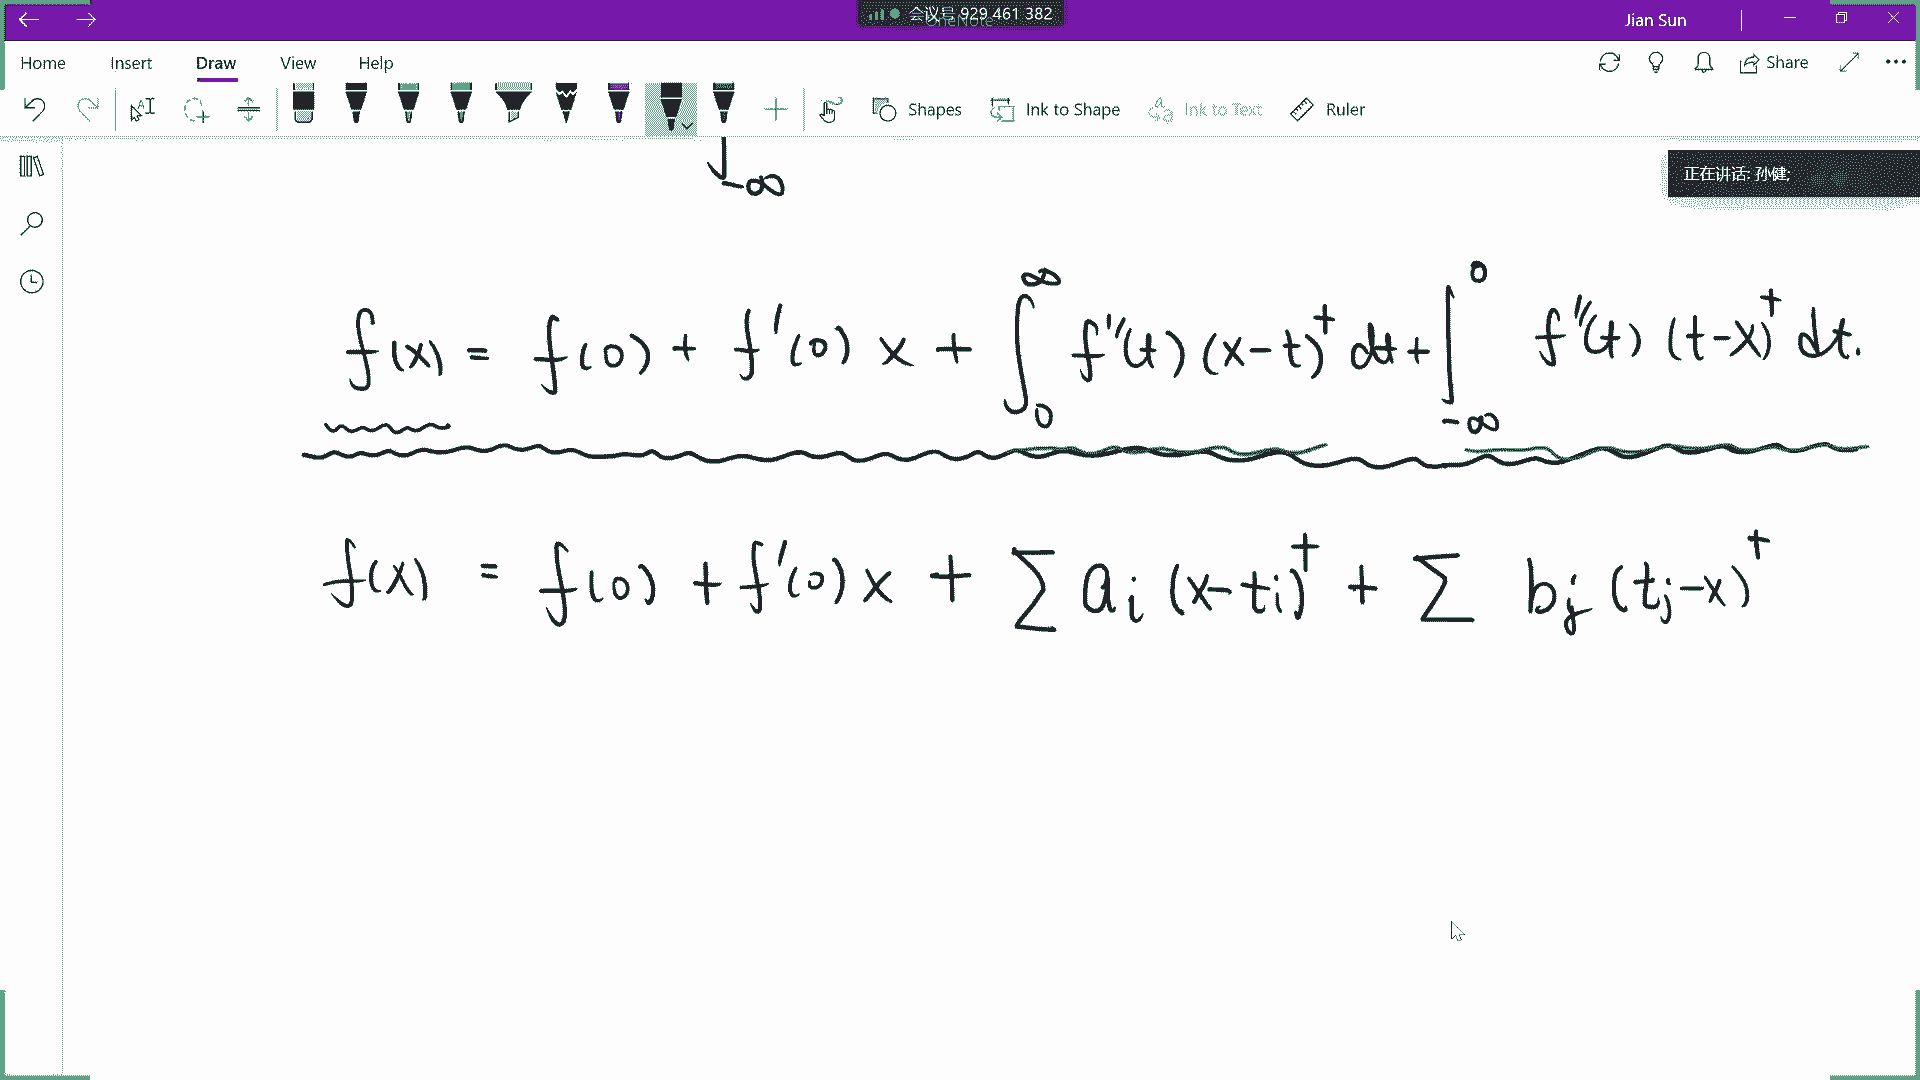 会议号 929 461 382
Jian Sun
Home Insert Draw View Help Share
Shapes Ink to Shape Ink to Text Ruler
正在讲话: 孙健;
-∞
f(x) = f(0) + f'(0) x + ∫₀^∞ f''(t) (x-t)⁺ dt + ∫_{-∞}^0 f''(t) (t-x)⁺ dt.
f(x) = f(0) + f'(0) x + ∑ a_i (x-t_i)⁺ + ∑ b_j (t_j-x)⁺